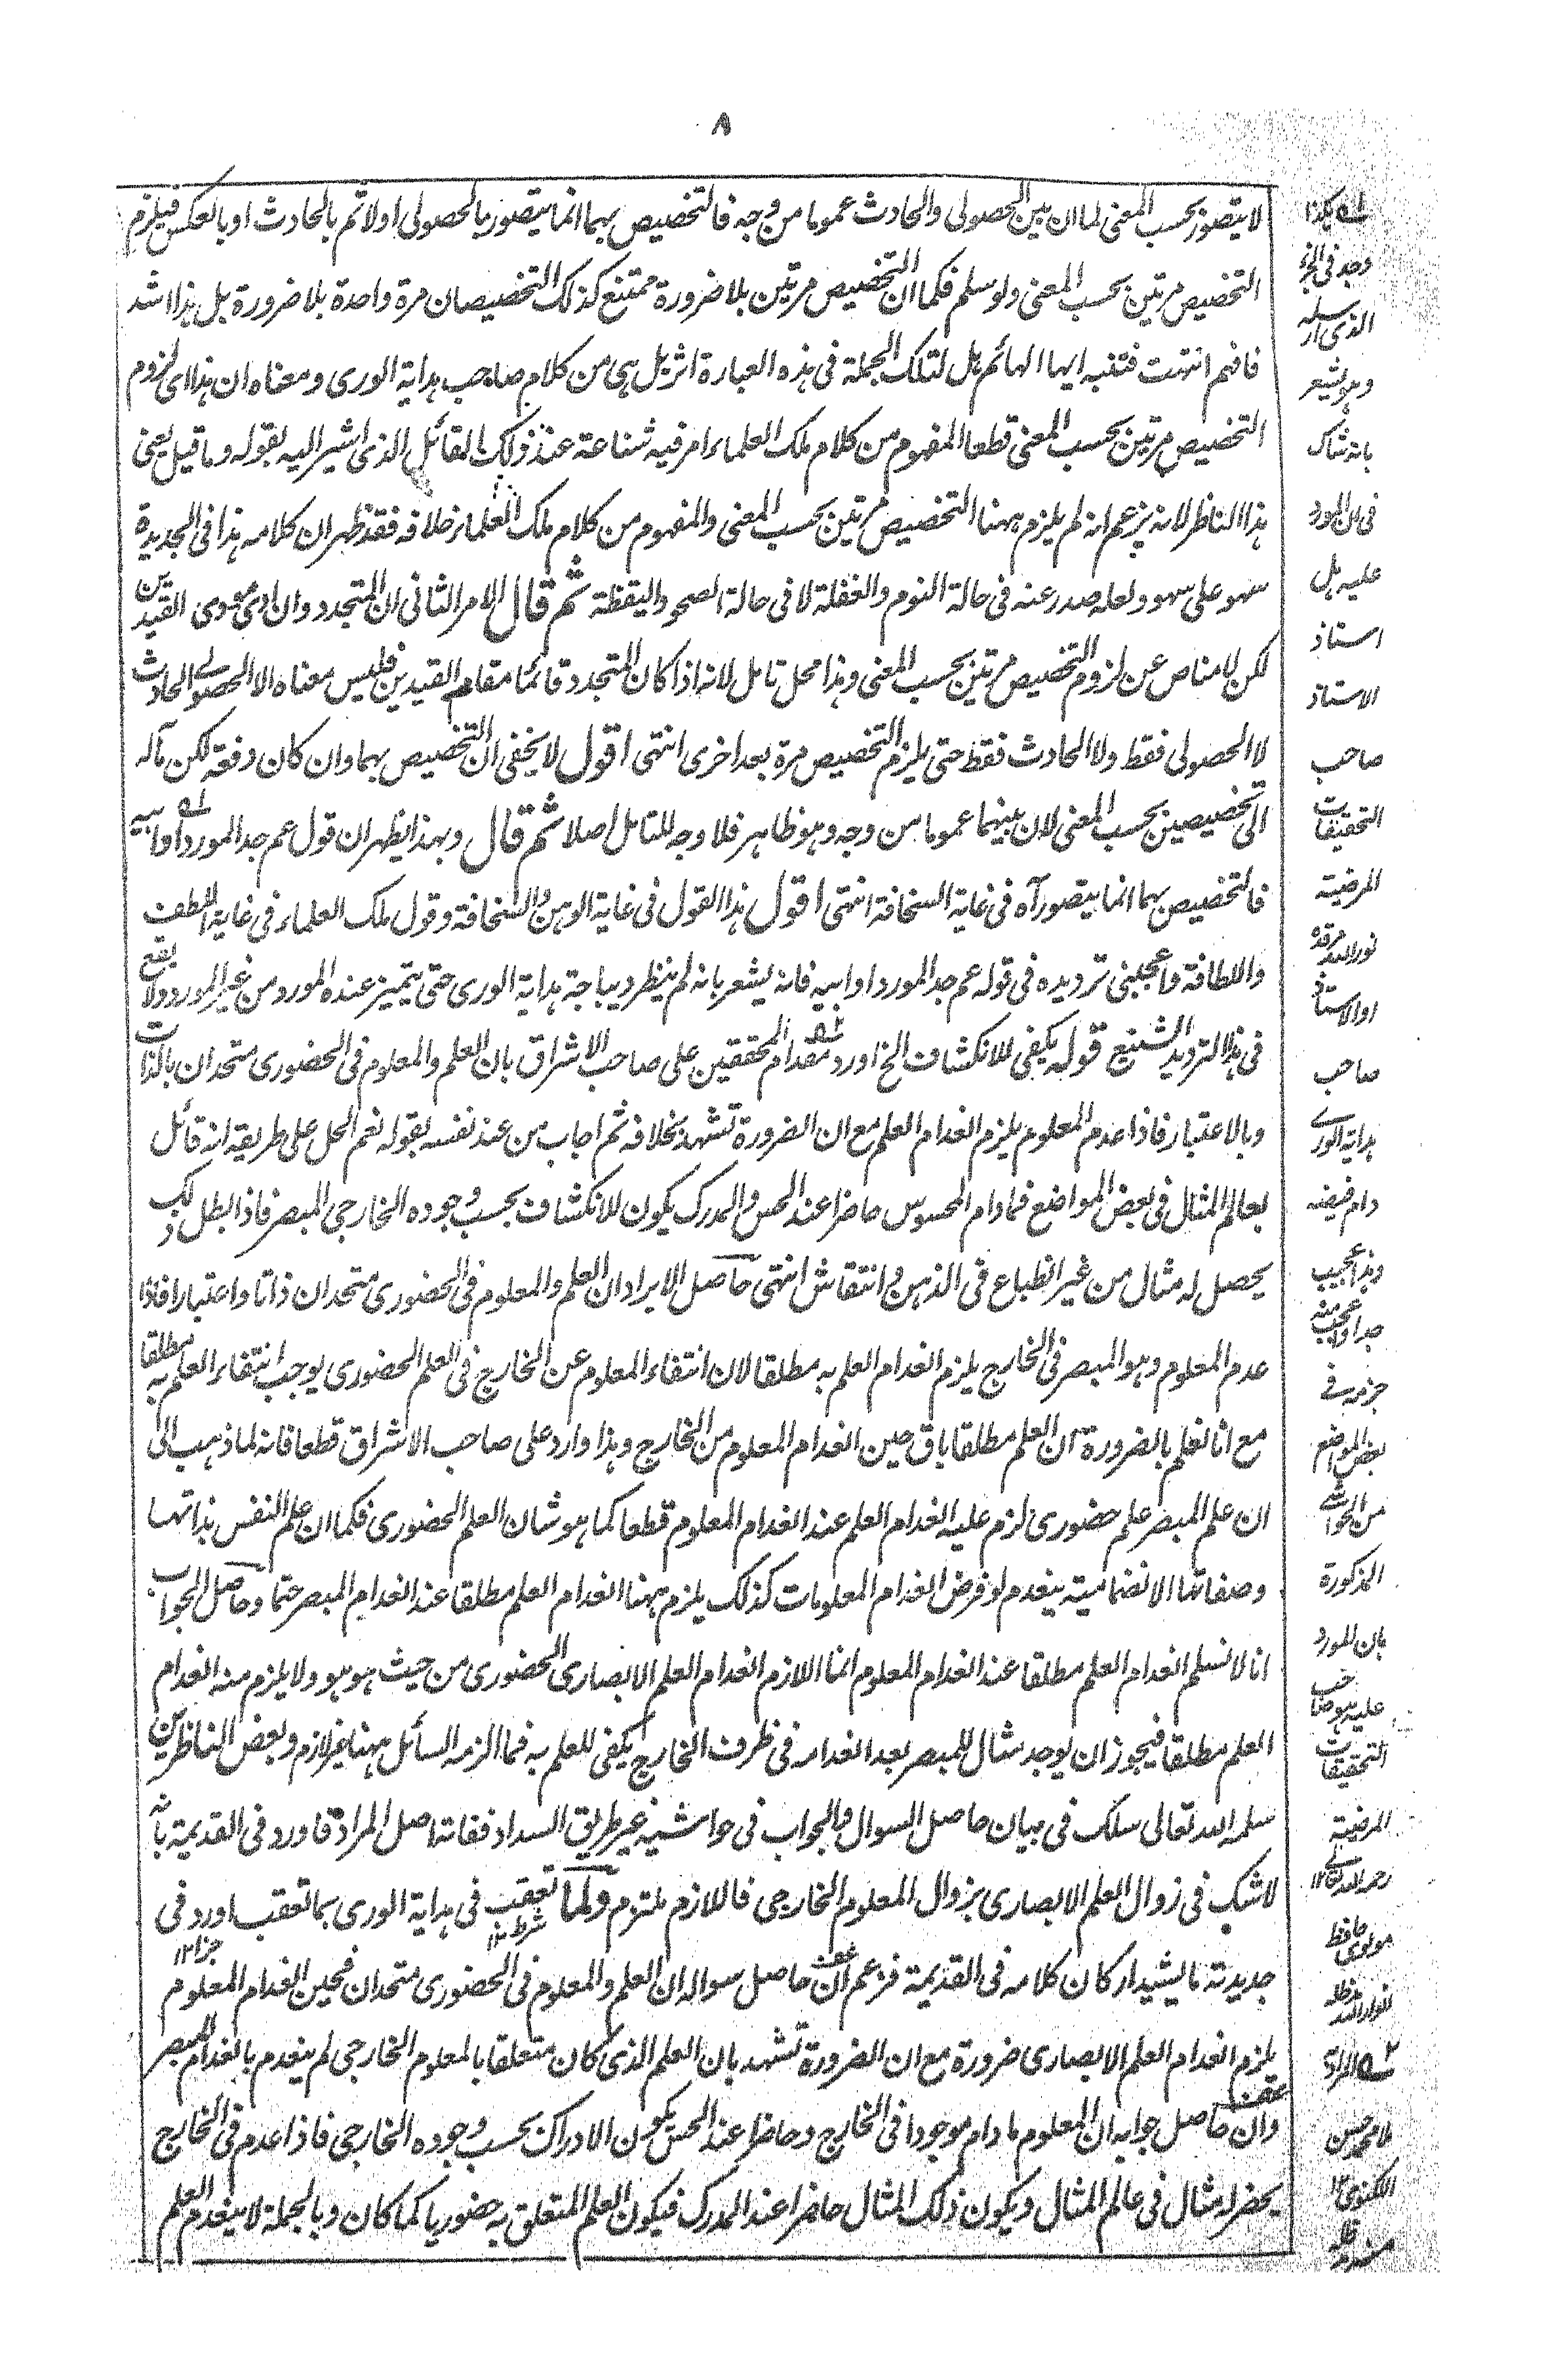 ٨
لا يتصور بحسب المعنى لما ان بين الحصولى والحادث عموما من وجه فالتخصيص بهما انما يتصور بالحصولى اولا ثم بالحادث او بالعكس فيلزم
التخصيص مرتين بحسب المعنى ولو سلم فكما ان التخصيص مرتين بلا ضرورة ممتنع كذلك التخصيصان مرة واحدة بلا ضرورة بل هذا اشد
فافهم انتهت فتنبه ايها الهائم هل لتلك الجملة فى هذه العبارة اثر بل هى من كلام صاحب هداية الورى ومعناه ان هذا اى لزوم
التخصيص مرتين بحسب المعنى قطعا المفهوم من كلام ملك العلماء امر فيه شناعة عند ذلك القائل الذى اشير اليه بقوله وما قيل يعنى
هذا الناظر لانه يزعم انه لم يلزم ههنا التخصيص مرتين بحسب المعنى والمفهوم من كلام ملك العلماء خلافه فقد ظهر ان كلامه هذا فى الجديدة
سهو على سهو ولعله صدر عنه فى حالة النوم والغفلة لا فى حالة الصحو واليقظة ثم قال الامر الثانى ان المتجدد وان ادى مودى القيدين
لكن لا مناص عن لزوم التخصيص مرتين بحسب المعنى وهذا محل تامل لانه اذا كان المتجدد قائما مقام القيدين فليس معناه الا الحصولى الحادث
لا الحصولى فقط ولا الحادث فقط حتى يلزم التخصيص مرة بعد اخرى انتهى اقول لا يخفى ان التخصيص بهما وان كان دفعة لكن مآله
الى تخصيصين بحسب المعنى لان بينهما عموما من وجه وهو ظاهر فلا وجه للتامل اصلا ثم قال وبهذا يظهر ان قول عم جد المورد او ابيه
فالتخصيص بهما انما يتصور آه فى غاية السخافة انتهى اقول هذا القول فى غاية الوهن والسخافة وقول ملك العلماء فى غاية اللطف
واللطافة واعجبنى ترديده فى قوله عم جد المورد او ابيه فانه يشعر بانه لم ينظر ديباجة هداية الورى حتى يتميز عنده المورد من غير المورد ولا يقع
فى هذا الترديد الشنيع قوله يكفى للانكشاف الخ اورد مقدام المحققين على صاحب الاشراق بان العلم والمعلوم فى الحضورى متحدان بالذات
وبالاعتبار فاذا عدم المعلوم يلزم انعدام العلم مع ان الضرورة تشهد بخلافه ثم اجاب من عند نفسه بقوله نعم الحل على طريقة انه قائل
بعالم المثال فى بعض المواضع فما دام المحسوس حاضرا عند الحس والمدرك يكون للانكشاف بحسب وجوده الخارجى المبصر فاذا بطل ذلك
يحصل له مثال من غير انطباع فى الذهن وانتقاش انتهى حاصل الايراد ان العلم والمعلوم فى الحضورى متحدان ذاتا واعتبارا فاذا
عدم المعلوم وهو المبصر فى الخارج يلزم انعدام العلم به مطلقا لان انتفاء المعلوم عن الخارج فى العلم الحضورى يوجب انتفاء العلم به مطلقا
مع انا نعلم بالضرورة ان العلم مطلقا باق حين انعدام المعلوم من الخارج وهذا وارد على صاحب الاشراق قطعا فانه لما ذهب الى
ان علم المبصر علم حضورى لزم عليه انعدام العلم عند انعدام المعلوم قطعا كما هو شان العلم الحضورى فكما ان علم النفس بذاتها
وصفاتها الانضمامية ينعدم لو فرض انعدام المعلومات كذلك يلزم ههنا انعدام العلم مطلقا عند انعدام المبصر حتما وحاصل الجواب
انا لا نسلم انعدام العلم مطلقا عند انعدام المعلوم انما اللازم انعدام العلم الابصارى الحضورى من حيث هو هو ولا يلزم منه انعدام
العلم مطلقا فيجوز ان يوجد مثال للمبصر بعد انعدامه فى ظرف الخارج يكفى للعلم به فما الزمه السائل ههنا غير لازم وبعض الناظرين
سلمه الله تعالى سلك فى بيان حاصل السوال والجواب فى حواشيه غير طريق السداد ففاته اصل المراد فاورد فى القديمة بانه
لا شك فى زوال العلم الابصارى بزوال المعلوم الخارجى فاللازم ملتزم ولما تعقب فى هداية الورى بما تعقب اورد فى
شرط ١٢
جزا ١٢
جديدته ما يشيد اركان كلامه فى القديمة فزعم ان حاصل سواله ان العلم والمعلوم فى الحضورى متحدان فحين انعدام المعلوم
يلزم انعدام العلم الابصارى ضرورة مع ان الضرورة تشهد بان العلم الذى كان متعلقا بالمعلوم الخارجى لم ينعدم بانعدام المبصر
وان حاصل جوابه ان المعلوم ما دام موجودا فى الخارج وحاضرا عند الحس يكون الادراك بحسب وجوده الخارجى فاذا عدم فى الخارج
يحضر له مثال فى عالم المثال ويكون ذلك المثال حاضرا عند المدرك فيكون العلم المتعلق به حضوريا كما كان وبالجملة لا ينعدم العلم
له هكذا
وجد فى الجزء
الذى ارسله
وهو يشعر
بانه شاك
فى ان المورد
عليه هل
استاذ
الاستاذ
صاحب
التحقيقات
المرضية
نور الله مرقده
او الاستاذ
صاحب
هداية الورى
دام فيضه
وهذا عجيب
جدا واعجب منه
جزمه فى
بعض المواضع
من الحواشى
المذكورة
بان المورد
عليه هو صاحب
التحقيقات
المرضية
رحمه الله تعالى ١٢
مولوى حافظ
انوار الله مد ظله
٢ه المراد
ملا محمد حسن
اللكنوى ١٢
منه مد ظله